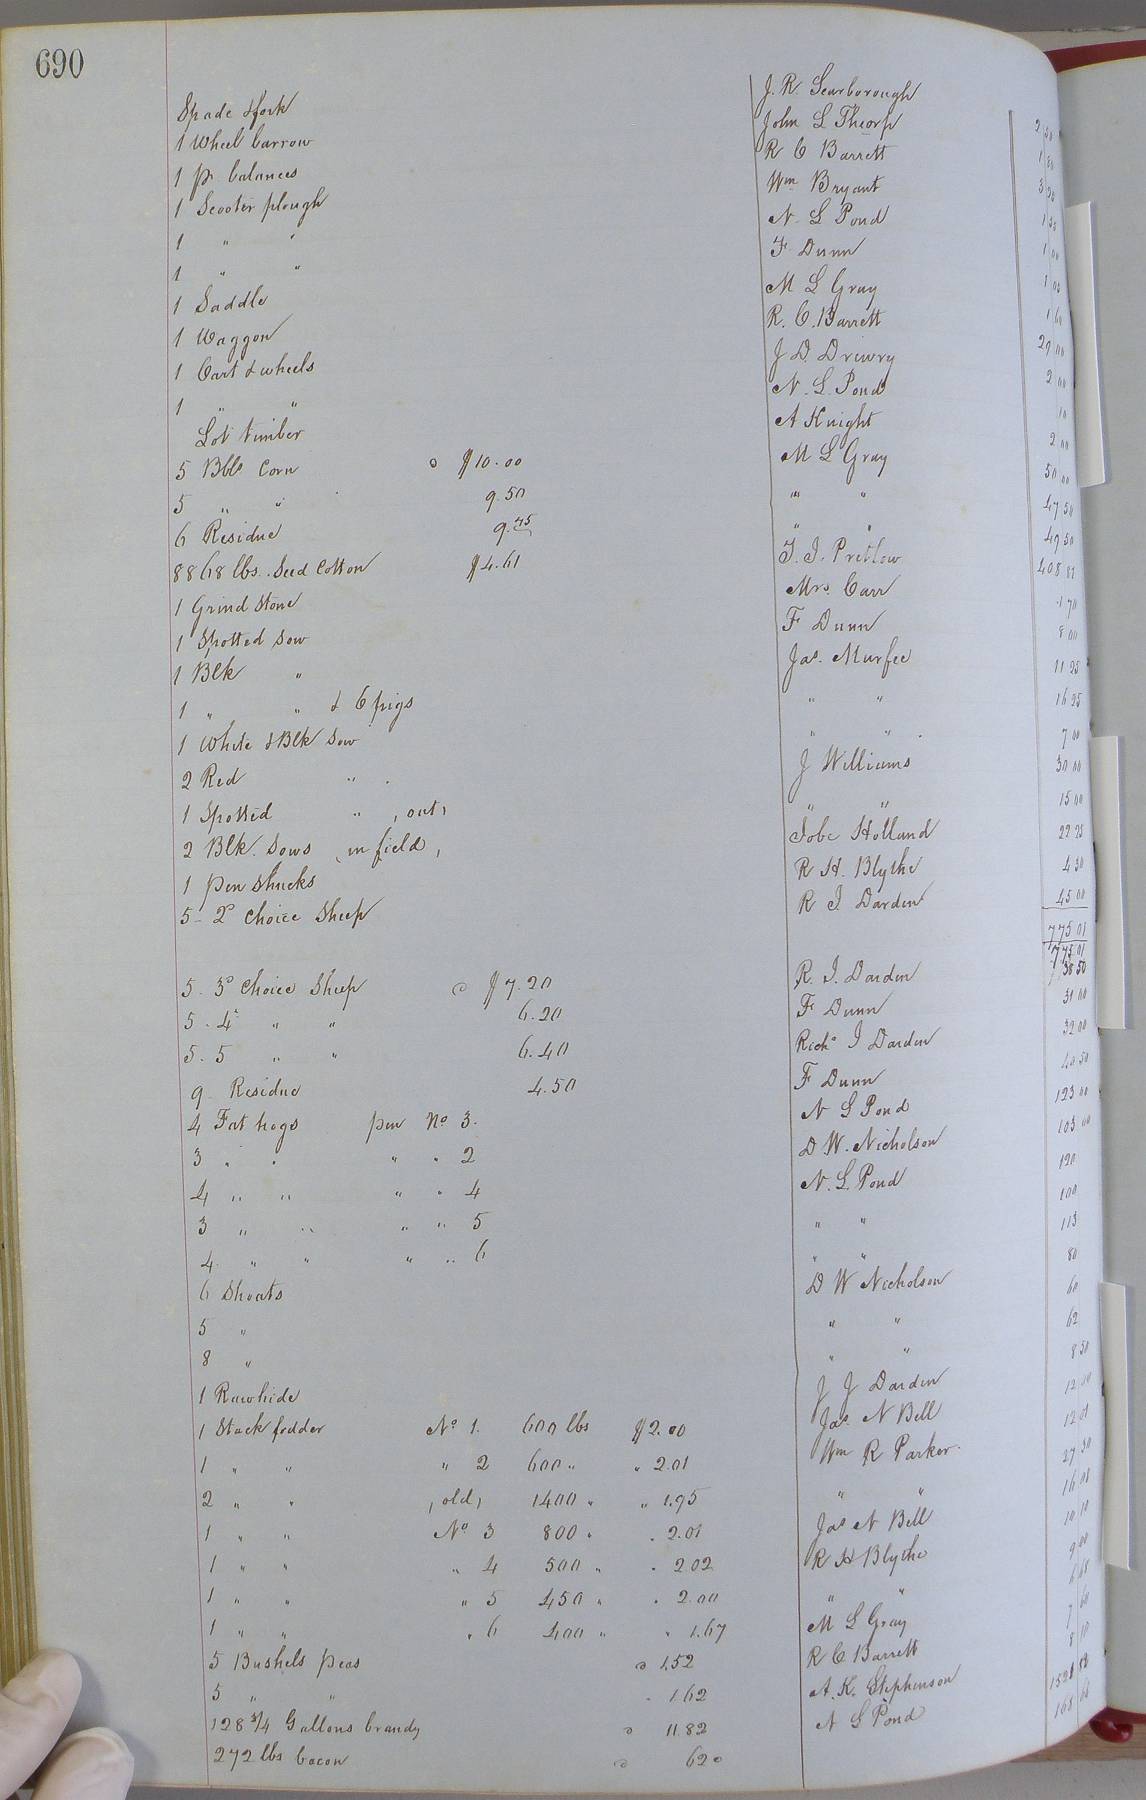 690
Spade & fork J. R. Scarborough
1 Wheel barrow John L Thorp 2 50
1 pr balances R C Barrett 1 50
1 Scooter plough Wm Bryant 3 25
1 " " N L Pond 1
1 " " F Dunn 1 00
1 Saddle M L Gray 1 05
1 Waggon R. C. Barrett 1
1 Cart & wheels J D. Drewry 29 00
1 " " N. L. Pond 2 00
Lot timber A Knight 10
5 Bbls Corn @ $10.00 M L Gray 2 00
5 " " 9.50 " " 50 00
6 Residue 9.45 " " 47 50
8868 lbs. Seed Cotton $4.61 T. J. Pretlow 49 50
1 Grind Stone Mrs. Carr 408 81
1 Spotted Sow F Dunn 1 70
1 Blk " Jas. Murfee 8 00
1 " " & 6 pigs " " 11 25
1 White & Blk Sow " " 16 25
2 Red " J Williams 7 00
1 Spotted " , out, " " 30 00
2 Blk. Sows , in field, Jobe Holland 15 00
1 pen shucks R H. Blythe 22 25
5 - 2d Choice Sheep R J. Darden 4 50
45 00
775 01
775 01
5 - 3d Choice Sheep @ $7.20 R. J. Darden 38 50
5 - 4" " " 6.20 F Dunn 31 00
5 - 5 " " 6.40 Richd J Darden 32 00
9 - Residue 4.50 F Dunn 40 50
4 Fat hogs pen No 3. N L Pond 123 00
3 " " " " 2 D W. Nicholson 103 00
4 " " " " 4 N. L. Pond 120
3 " " " " 5 " " 100
4 " " " " 6 " " 113
6 Shoats D W Nicholson 80
5 " " " 60
8 " " " 62
1 Rawhide J J Darden 8 50
1 Stack fodder No 1. 600 lbs $2.00 Jas N Bell 12 00
1 " " " 2 600 " " 2.01 Wm R Parker 12 01
2 " " , old, 1400 " " 1.95 " " 27 30
1 " " No 3 800 " " 2.01 Jas N Bell 16 08
1 " " " 4 500 " " 2.02 R H Blythe 10 10
1 " " " 5 450 " " 2.00 " " 9 00
1 " " " 6 400 " " 1.67 M L Gray 6 68
5 Bushels peas @ 1.52 R C Barrett 7 60
5 " " " 1.62 A. K. Stephenson 8 10
128 3/4 Gallons brandy @ 11.82 N L Pond 1521 82
272 lbs bacon @ 62 168 64